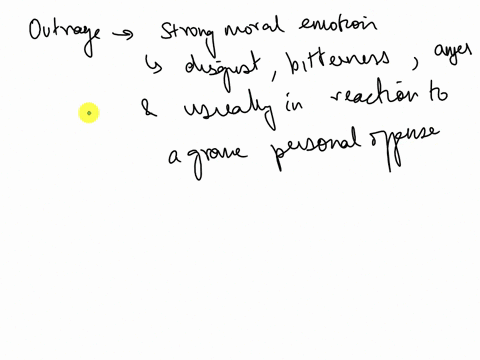 Outrage → strong moral emotion
↳ disgust, bitterness, anger
& usually in reaction to
a grave personal offense